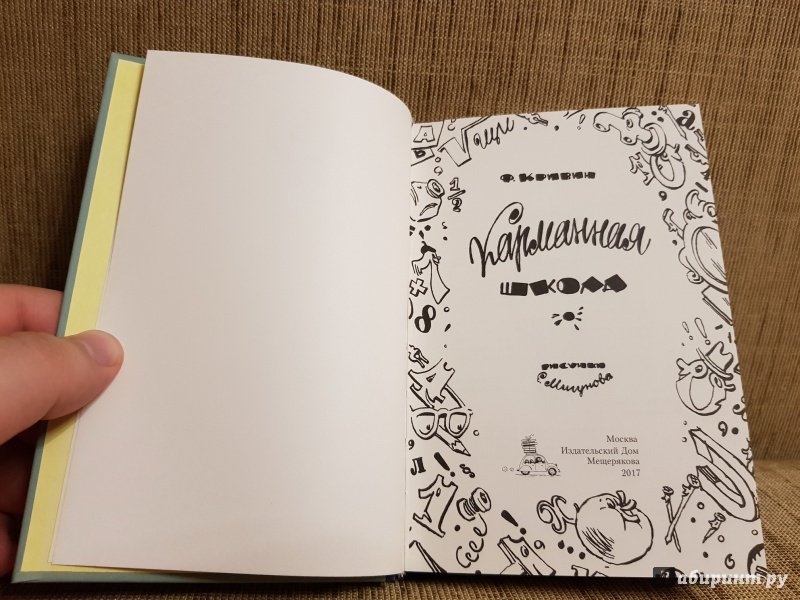 Ф. Кривин
Карманная
школа
рисунки
Е. Мигунова
Москва
Издательский Дом
Мещерякова
2017
Лабиринт.ру